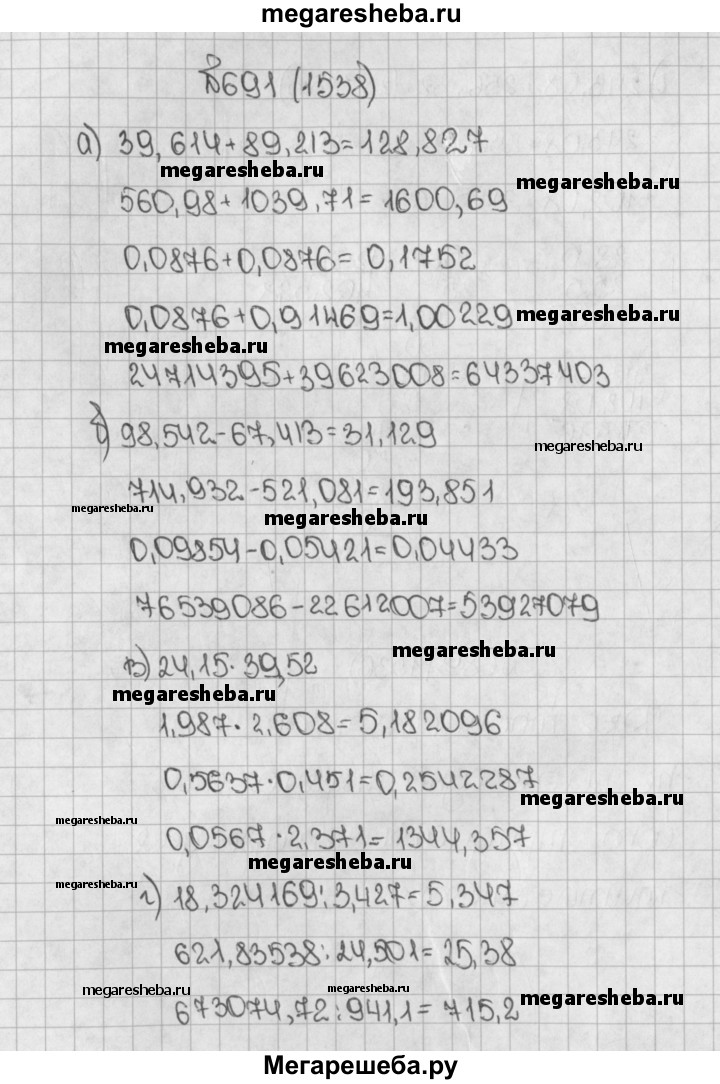 megaresheba.ru
№691 (1538)
а) 39,614+89,213=128,827
megaresheba.ru
megaresheba.ru
560,98+1039,71=1600,69
0,0876+0,0876=0,1752
0,0876+0,91469=1,00229
megaresheba.ru
megaresheba.ru
24714395+39623008=64337403
б) 98,542-67,413=31,129
megaresheba.ru
714,932-521,081=193,851
megaresheba.ru
megaresheba.ru
0,09854-0,05421=0,04433
76539086-22612007=53927079
megaresheba.ru
в) 24,15·39,52
megaresheba.ru
1,987·2,608=5,182096
0,5637·0,451=0,2542287
megaresheba.ru
megaresheba.ru
0,0567·2,371=1344,357
megaresheba.ru
megaresheba.ru
г) 18,324169:3,427=5,347
621,83538:24,501=25,38
megaresheba.ru
megaresheba.ru
megaresheba.ru
673074,72:941,1=715,2
Мегарешеба.ру